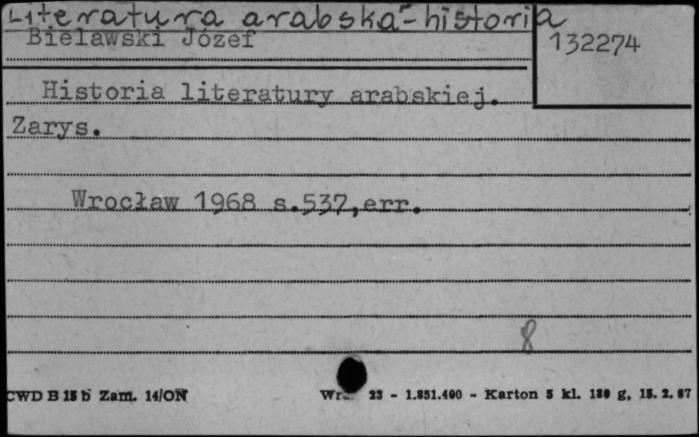 Literatura arabska - historia
Bielawski Józef
132274
Historia literatury arabskiej.
Zarys.
Wrocław 1968 s.537,err.
8
CWD B 15 b Zam. 14/ON 23 - 1.851.400 - Karton 5 kl. 180 g, 15. 2. 67